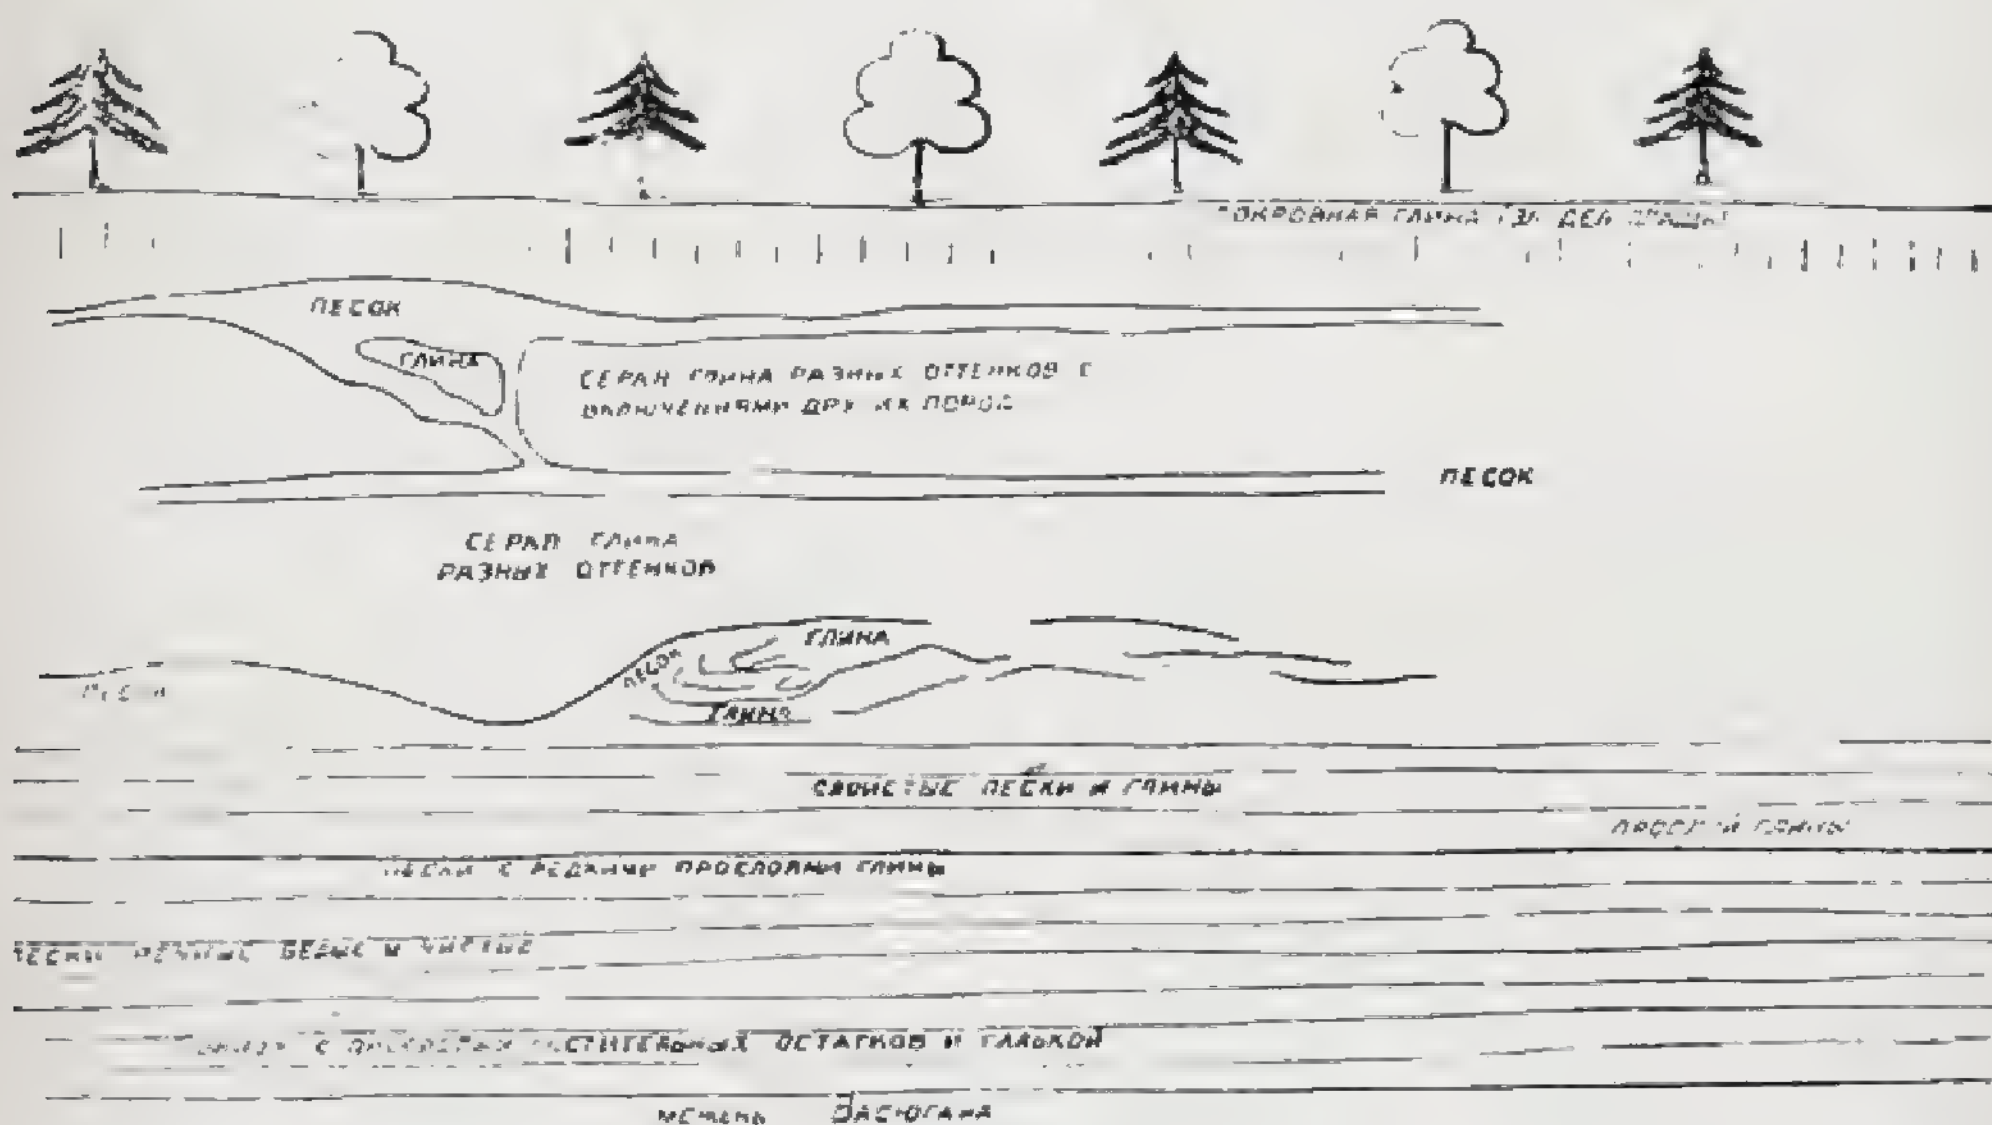 ПОКРОВНАЯ ГЛИНА
ПЕСОК
ГЛИНА
СЕРАЯ ГЛИНА РАЗНЫХ ОТТЕНКОВ С
ВКЛЮЧЕНИЯМИ ДРУГИХ ПОРОД
ПЕСОК
СЕРАЯ ГЛИНА
РАЗНЫХ ОТТЕНКОВ
ГЛИНА
ПЕСОК
ПЕСОК
ГЛИНА
СЛОИСТЫЕ ПЕСКИ И ГЛИНЫ
ПРОСЛОЙ ГЛИНЫ
ПЕСКИ С РЕДКИМИ ПРОСЛОЯМИ ГЛИНЫ
ПЕСКИ РЕЧНЫЕ БЕЛЫЕ И ЧИСТЫЕ
С РАСТИТЕЛЬНЫХ ОСТАТКОВ И ГАЛЬКОЙ
МЕЖЕНЬ ВАСЮГАНА